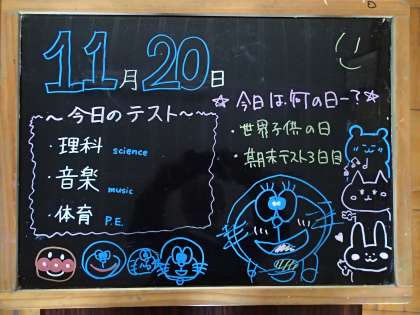 11月20日
～今日のテスト～
・理科 science
・音楽 music
・体育 P.E.
☆今日は何の日ー？☆
・世界子供の日
・期末テスト3日目